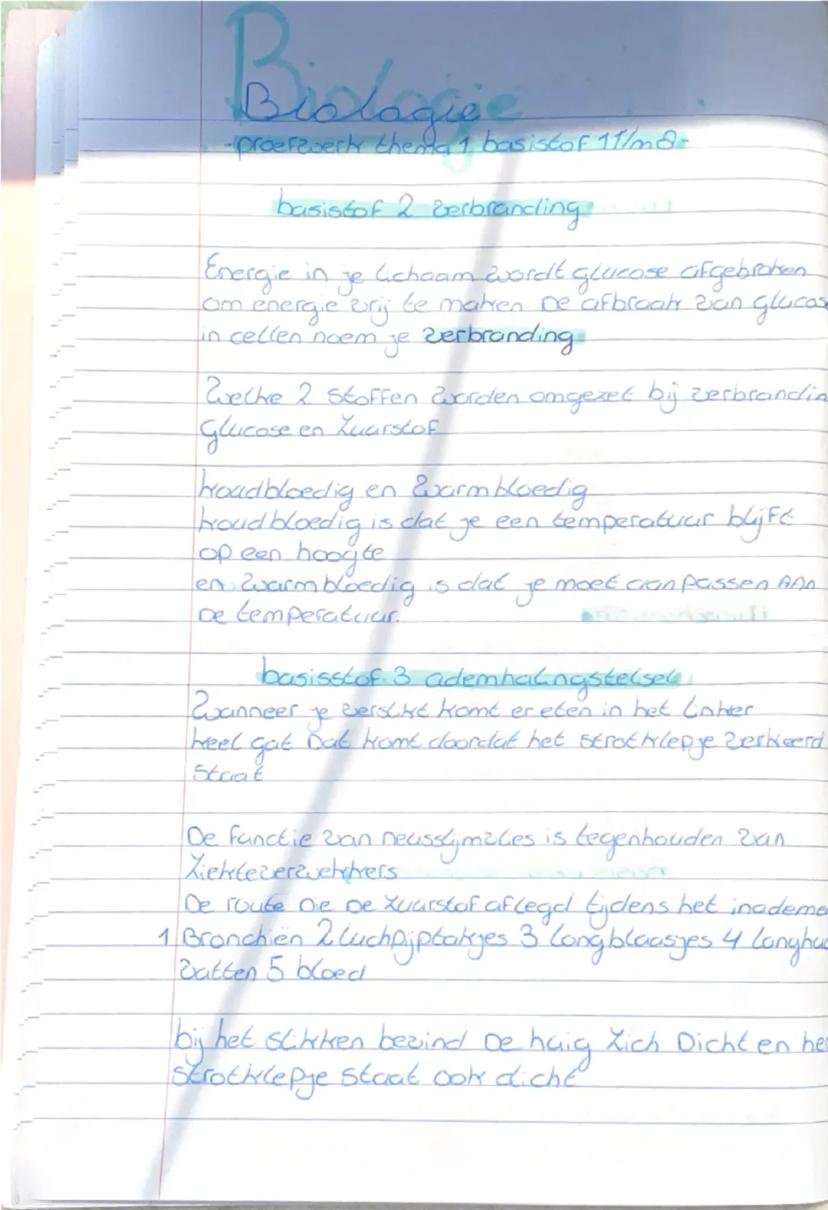 Biologie
Biologie
-proefwerk thema 1 basistof 1 t/m 8-
basistof 2 verbranding
Energie in je lichaam wordt glucose afgebroken
om energie vrij te maken De afbraak van glucos
in cellen noem je verbranding
Welke 2 stoffen worden omgezet bij verbrandin
Glucose en zuurstof
koudbloedig en Warmbloedig
koudbloedig is dat je een temperatuur blijft
op een hoogte
en warmbloedig is dat je moet aanpassen AAn
De temperatuur.
basisstof 3 ademhalingstelsel
Wanneer je verslikt komt er eten in het linker
keel gat Dat komt doordat het strotklepje verkeerd
staat
De functie van neusslijmvlies is tegenhouden van
Ziekteverwekkers
De route Die De zuurstof aflegd tijdens het inademe
1 Bronchiën 2 luchpijptakjes 3 longblaasjes 4 longhaa
vatten 5 bloed
bij het slikken bevind De huig zich Dicht en he
strotklepje staat ook dicht